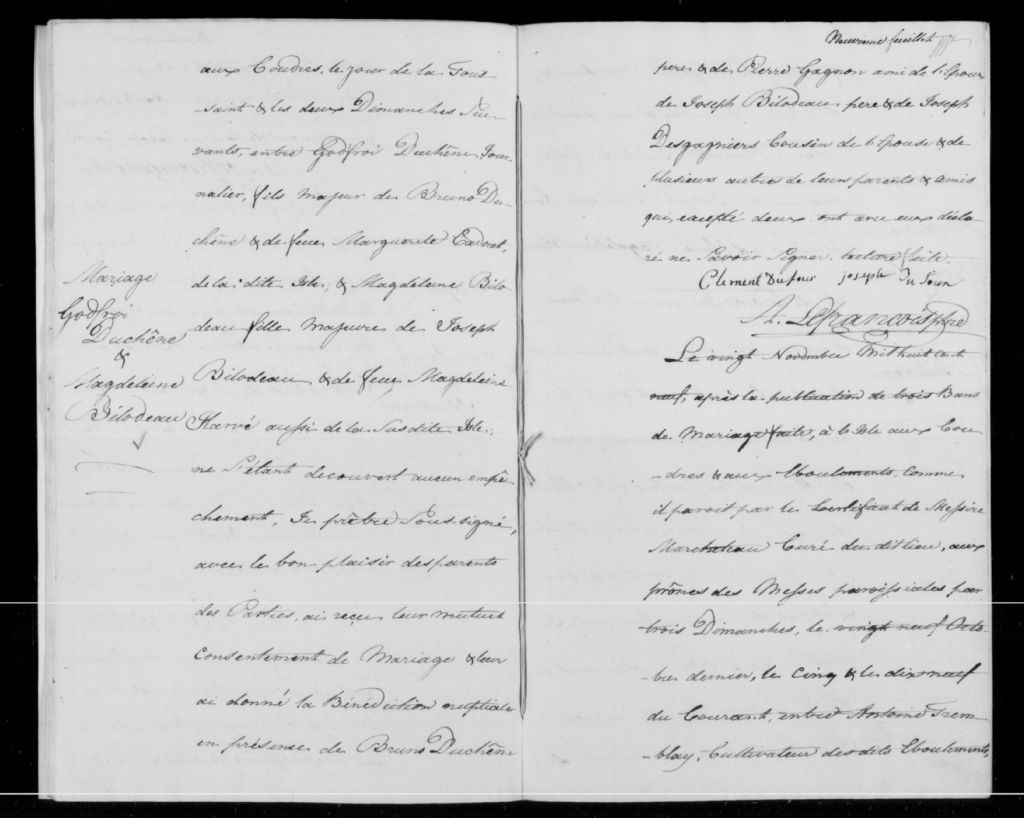 aux Coudres, le jour de la Tous
-saint & les deux Dimanches Sui-
vants, entre Godfroi Duchêne Jour-
nalier, fils majeur de Bruno Du-
chêne & de feue Marguerite Cadoret,
de la dite Isle; & Magdeleine Bilo-
deau fille majeure de Joseph
Bilodeau & de feue Magdeleine
Harvé aussi de la Susdite Isle;
ne S'étant decouvert aucun empê-
chement, Je prêtre Sous-signé,
avec le bon plaisir des parents
des Parties, ai reçu leur mutuel
Consentement de Mariage & leur
ai donné la Bénédiction nuptiale
en présence de Bruno Duchêne
Mariage
Godfroi
Duchêne
&
Magdeleine
Bilodeau
Neuvieme feuillet
pere & de Pierre Gagnon ami de l'Epoux
de Joseph Bilodeau pere & de Joseph
Desgagniers Cousin de l'Epouse & de
plusieurs autres de leurs parents & amis
qui, excepté deux ont avec eux décla-
ré ne Savoir Signer. lecture faite.
Clement Dufour joseph Du four
A. Lefrançois ptre
Le vingt Novembre Mil huit cent
neuf, après la publication de trois Bans
de Mariage faite, à l'Isle aux Cou
-dres & aux Eboulements, Comme
il paroit par le Certificat de Messire
Marcheteau Curé du dit lieu, aux
prônes des Messes paroissiales par
trois Dimanches, le vingt neuf Octo-
-bre dernier, le Cinq & le dix neuf
du Courant, entre Antoine Trem
-blay, Cultivateur des dits Eboulements,